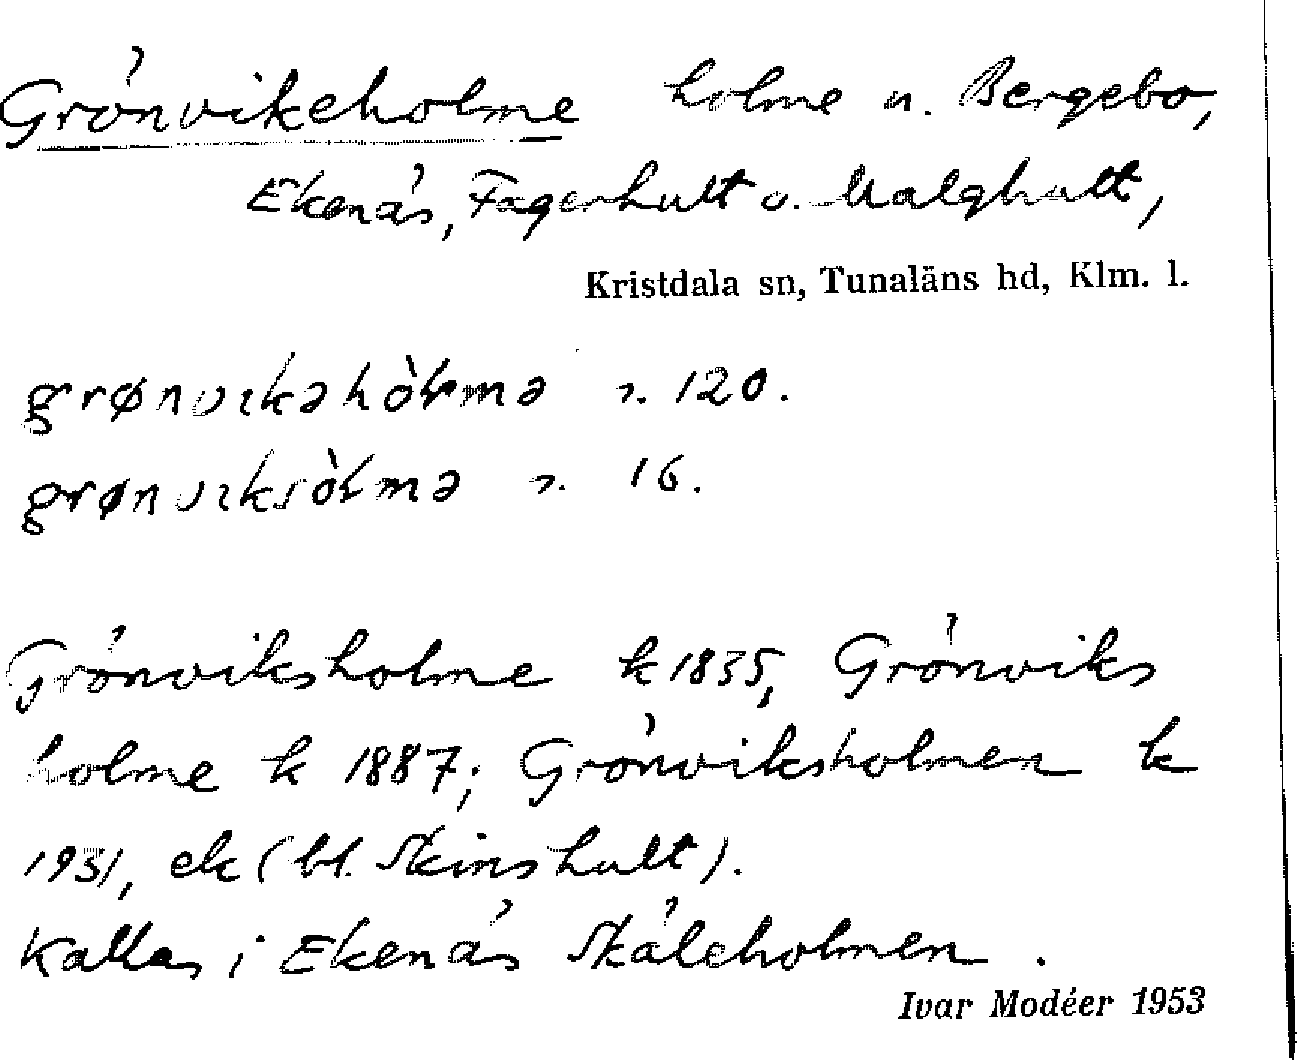 Grönvikeholme holme u. Bergebo,
Ekenäs, Fagerhult o. Malghult,
Kristdala sn, Tunaläns hd, Klm. l.
grønvɪkəhòlmə s. 120.
grønvɪksòlmə s. 16.
Grönviksholme k 1835, Grönviks
holme k 1887; Grönviksholmen k
1931, ek (bl. Skinshult).
Kallas i Ekenäs Skäleholmen.
Ivar Modéer 1953